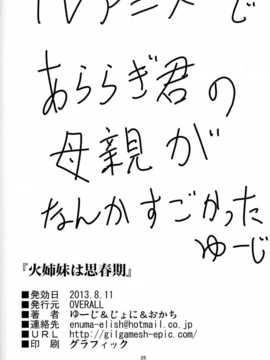 TVアニメじ
あららぎ君の
母親が
なんかすごかった
ゆーじ
『火姉妹は思春期』
■発効日 2013.8.11
■発行元 OVERALL
■著者 ゆーじ＆じょに＆おかち
■連絡先 enuma-elish@hotmail.co.jp
■URL http://gilgamesh-epic.com/
■印刷 グラフィック
25